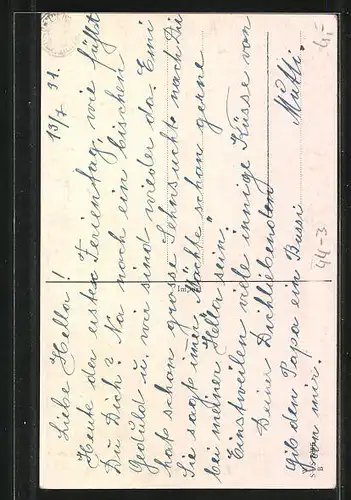 13/7 31.
Liebe Hella!
Heute der erste Ferientag, wie fühlst
Du Dich? Na noch ein bischen
Geduld u. wir sind wieder da. Emi
hat schon grosse Sehnsucht nach Dir
Sie sagt imer "Möchte schon gerne
bei meiner Hella sein".
Einstweilen viele innige Küsse von
Deiner Dichliebenden Mutti.
gib den Papa ein Bussi
von mir.
44-3